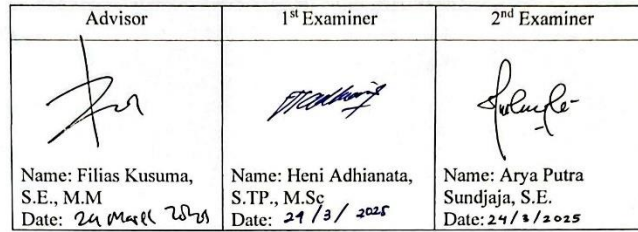 Advisor
1st Examiner
2nd Examiner
Name: Filias Kusuma,
S.E., M.M
Date: 24 March
Name: Heni Adhianata,
S.TP., M.Sc
Date: 24/3/2025
Name: Arya Putra
Sundjaja, S.E.
Date: 24/3/2025